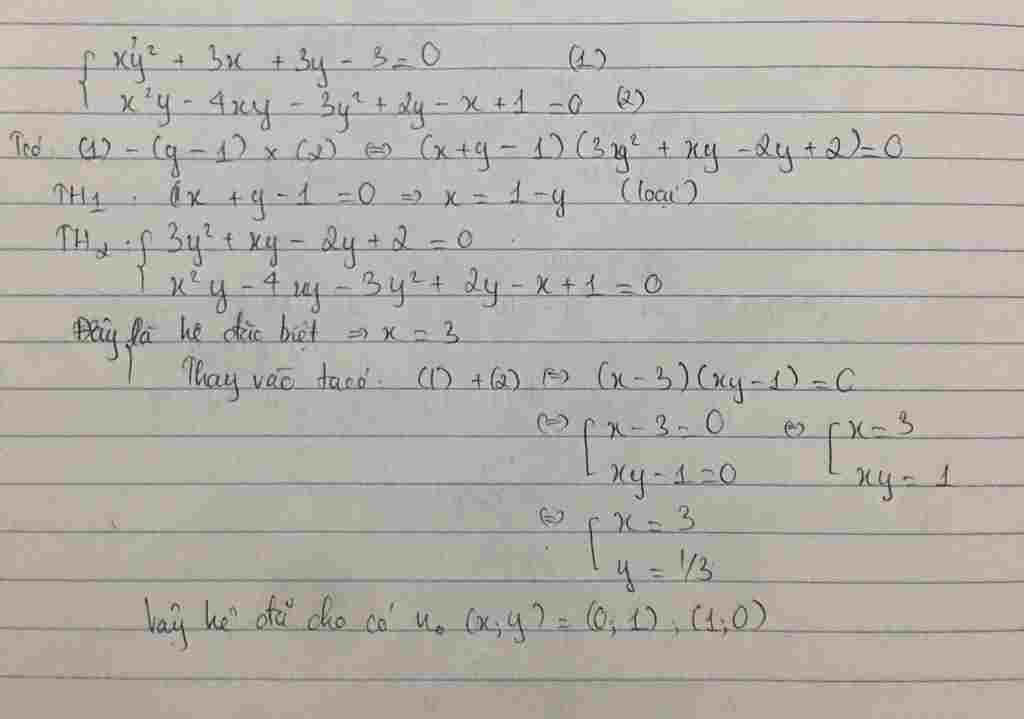 { xy² + 3x + 3y - 3 = 0 (1)
x²y - 4xy - 3y² + 2y - x + 1 = 0 (2)
Ta có (1) - (y - 1) × (2) ⇔ (x + y - 1)(3y² + xy - 2y + 2) = 0
TH1 . x + y - 1 = 0 ⇒ x = 1 - y (loại)
TH2 . { 3y² + xy - 2y + 2 = 0
x²y - 4xy - 3y² + 2y - x + 1 = 0
Đây là hê đặc biệt ⇒ x = 3
Thay vào ta có . (1) + (2) ⇔ (x - 3)(xy - 1) = 0
⇔ [ x - 3 = 0 ⇔ [ x = 3
xy - 1 = 0 xy = 1
⇔ [ x = 3
y = 1/3
Vậy hê đã cho có no (x; y) = (0; 1) , (1; 0)